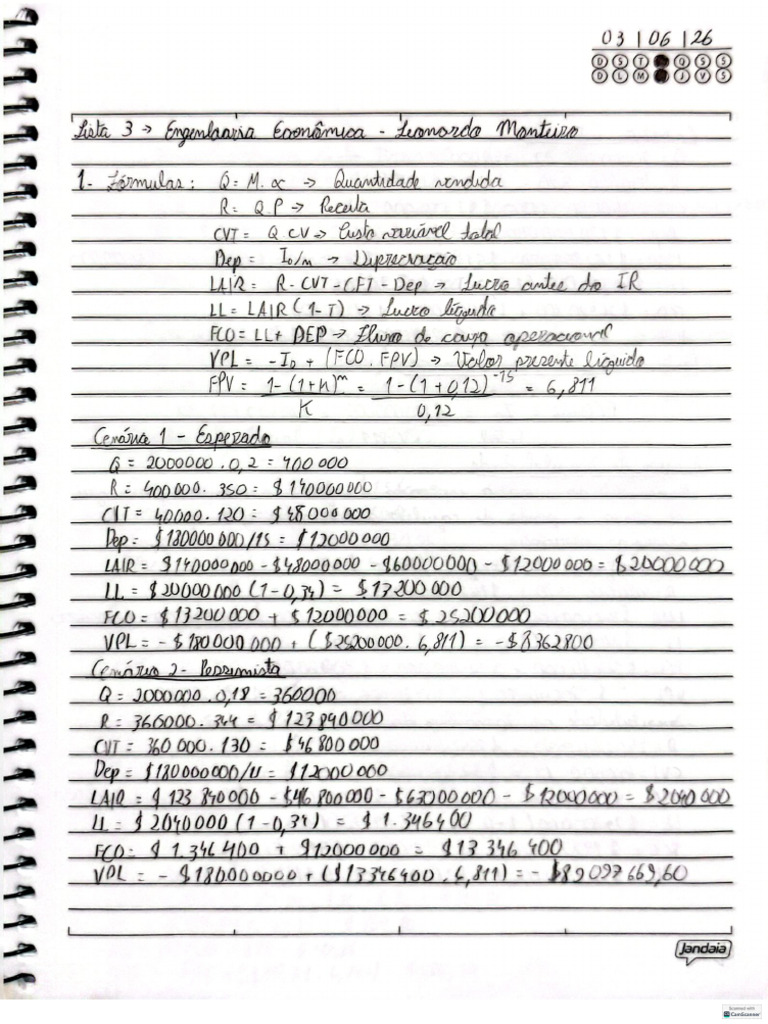 03 | 06 | 26
D S T Q S S
D L M J V S
Lista 3 → Engenharia Econômica - Leonardo Monteiro
1- Fórmulas: Q = M.α → Quantidade vendida
R = Q.P → Receita
CVT = Q.CV → Custo variável total
Dep = I₀/n → Depreciação
LAIR = R-CVT-CFT-Dep → Lucro antes do IR
LL = LAIR (1-T) → Lucro líquido
FCO = LL + DEP → Fluxo de caixa operacional
VPL = -I₀ + (FCO.FPV) → Valor presente líquido
FPV = 1-(1+K)ⁿ = 1-(1+0,12)⁻¹⁵ = 6,811
K 0,12
Cenário 1 - Esperado
Q = 2000000.0,2 = 400 000
R = 400000.350 = $140000000
CVT = 40000.120 = $48000000
Dep = $180000000/15 = $12000000
LAIR = $140000000 - $48000000 - $60000000 - $12000000 = $20000000
LL = $20000000 (1-0,34) = $13200000
FCO = $13200000 + $12000000 = $25200000
VPL = -$180000000 + ($25200000.6,811) = -$8362800
Cenário 2 - Pessimista
Q = 2000000.0,18 = 360000
R = 360000.344 = $123840000
CVT = 360000.130 = $46800000
Dep = $180000000/ = $12000000
LAIR = $123840000 - $46800000 - $63000000 - $12000000 = $2040000
LL = $2040000 (1-0,34) = $1.346400
FCO = $1.346400 + $12000000 = $13346400
VPL = -$180000000 + ($13346400.6,811) = -$89097669,60
Jandaia
Scanned with
CamScanner